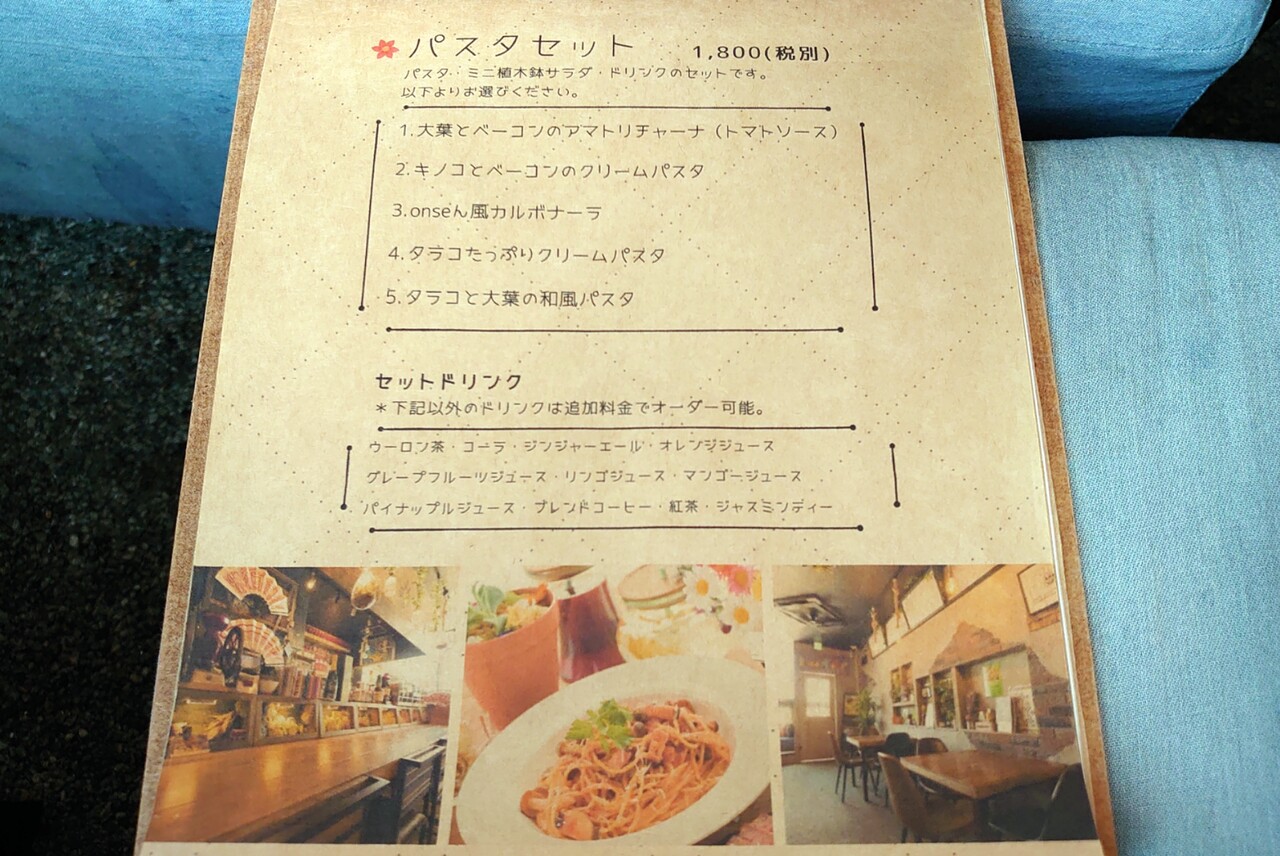 パスタセット 1,800(税別)
パスタ・ミニ植木鉢サラダ・ドリンクのセットです。
以下よりお選びください。
1.大葉とベーコンのアマトリチャーナ(トマトソース)
2.キノコとベーコンのクリームパスタ
3.onseん風カルボナーラ
4.タラコたっぷりクリームパスタ
5.タラコと大葉の和風パスタ
セットドリンク
*下記以外のドリンクは追加料金でオーダー可能。
ウーロン茶・コーラ・ジンジャーエール・オレンジジュース
グレープフルーツジュース・リンゴジュース・マンゴージュース
パイナップルジュース・ブレンドコーヒー・紅茶・ジャスミンディー